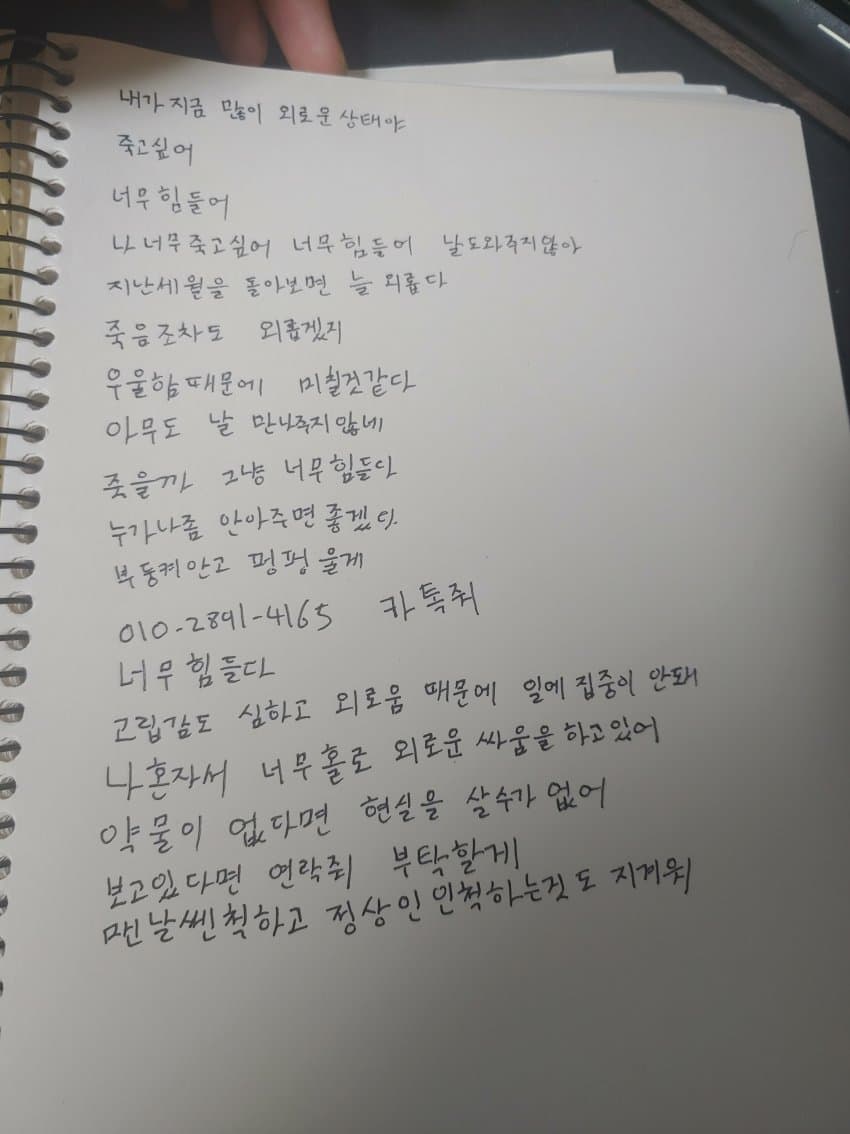 내가 지금 많이 외로운 상태야
죽고싶어
너무 힘들어
나 너무 죽고싶어 너무 힘들어 날 도와주지않아
지난세월을 돌아보면 늘 외롭다
죽음조차도 외롭겠지
우울함때문에 미칠것같다
아무도 날 만나주지않네
죽을까 그냥 너무힘들다
누가나좀 안아주면좋겠다.
부둥켜안고 펑펑 울게
010-2891-4165 카톡줘
너무힘들다
고립감도 심하고 외로움 때문에 일에 집중이 안돼
나 혼자서 너무 홀로 외로운 싸움을 하고있어
약물이 없다면 현실을 살수가 없어
보고있다면 연락줘 부탁할게
맨날쎈척하고 정상인인척하는것도 지겨워